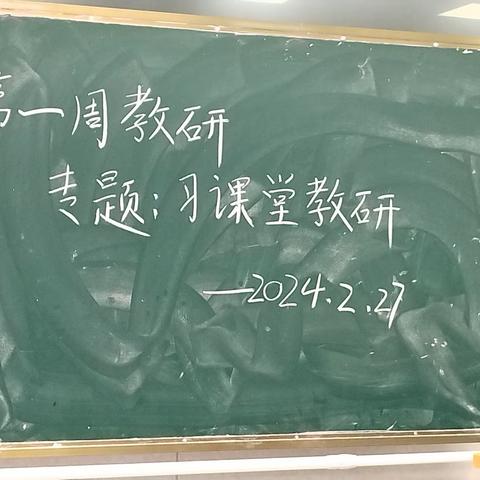 第一周教研
专题:习课堂教研
—2024.2.27